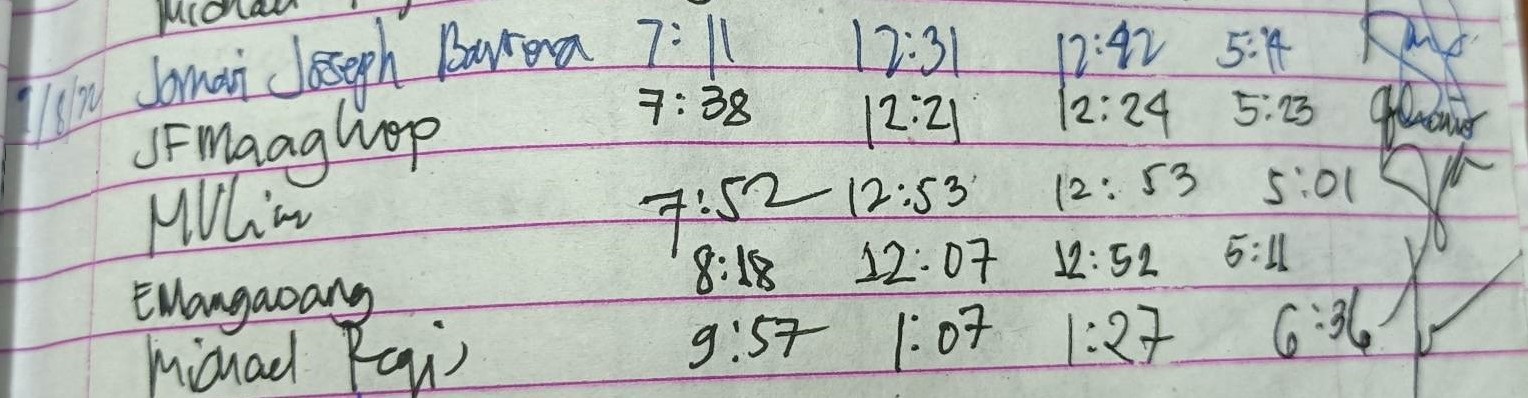 Michael
Jomari Joseph Barrera 7:11 12:31 12:42 5:14
JFMaaghop 7:38 12:21 12:24 5:23
MVLim 7:52 12:53 12:53 5:01
EMangaoang 8:18 12:07 12:52 5:11
Michael Regis 9:57 1:07 1:27 6:36